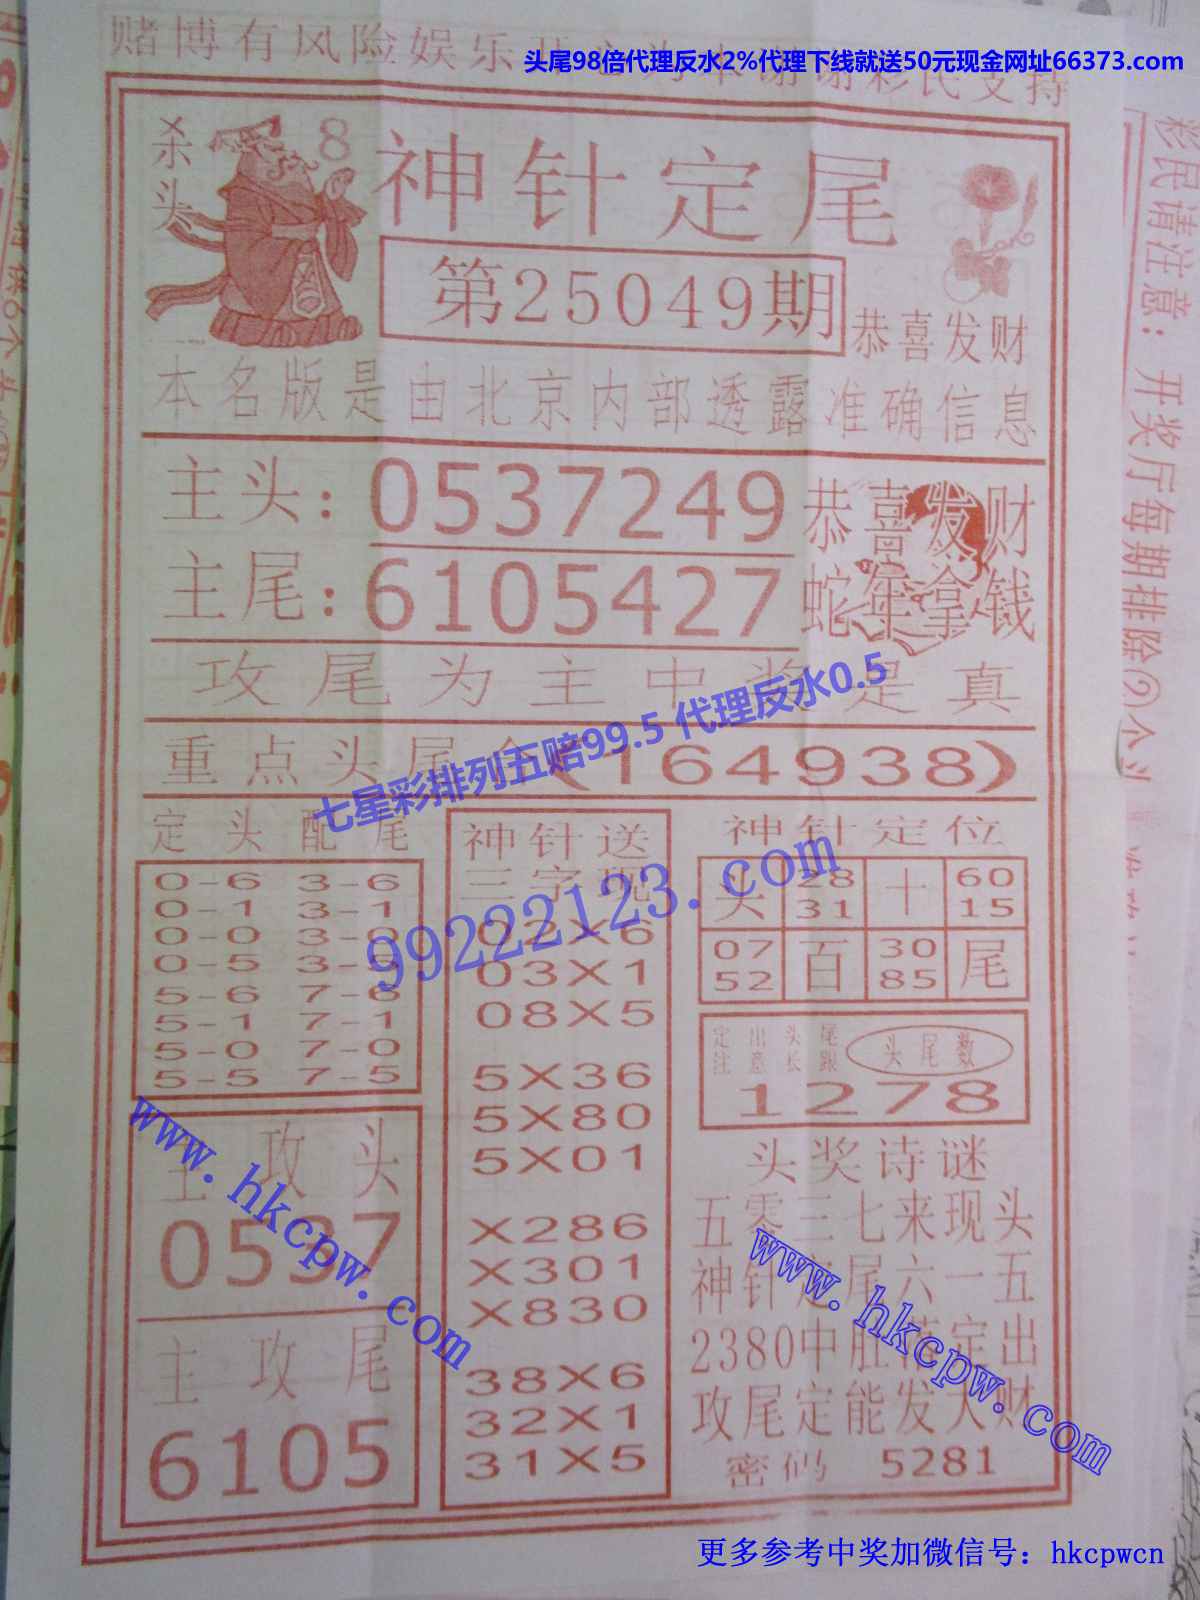 头尾98倍代理反水2%代理下线就送50元现金网址66373.com
赌博有风险娱乐
彩民支持
杀头 8
神针定尾
第25049期
恭喜发财
本名版是由北京内部透露准确信息
主头：0537249
主尾：6105427
恭喜发财
蛇年拿钱
攻尾为主中奖是真
重点头尾合(164938)
七星彩排列五赔99.5 代理反水0.5
99222123.com
定头配尾
0-6 3-6
0-1 3-1
0-0 3-0
0-5 3-5
5-6 7-6
5-1 7-1
5-0 7-0
5-5 7-5
主攻头
0537
主攻尾
6105
神针送
三字现
02X6
03X1
08X5
5X36
5X80
5X01
X286
X301
X830
38X6
32X1
31X5
神针定位
头 28 31 十 60 15
07 52 百 30 85 尾
定出头尾
注意长跟
头尾数
1278
头奖诗谜
五零三七来现头
神针定尾六一五
2380中肚落定出
攻尾定能发大财
密码 5281
www.hkcpw.com
www.hkcpw.com
更多参考中奖加微信号：hkcpwcn
彩民请注意：开奖厅每期排除